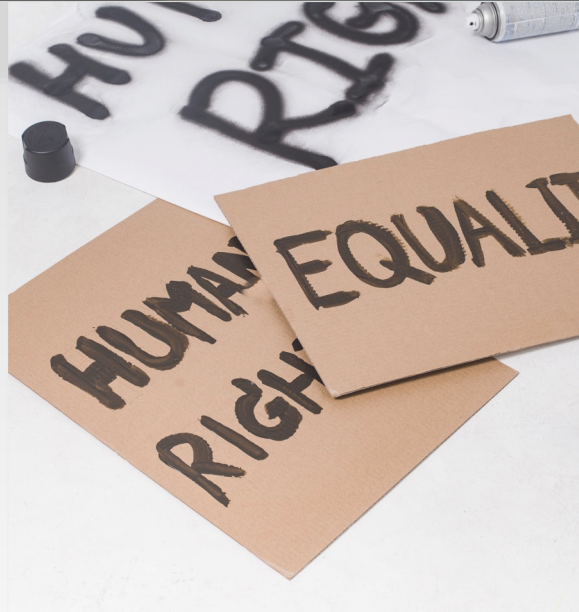 HU
RIG
EQUALIT
HUMAN
RIGH